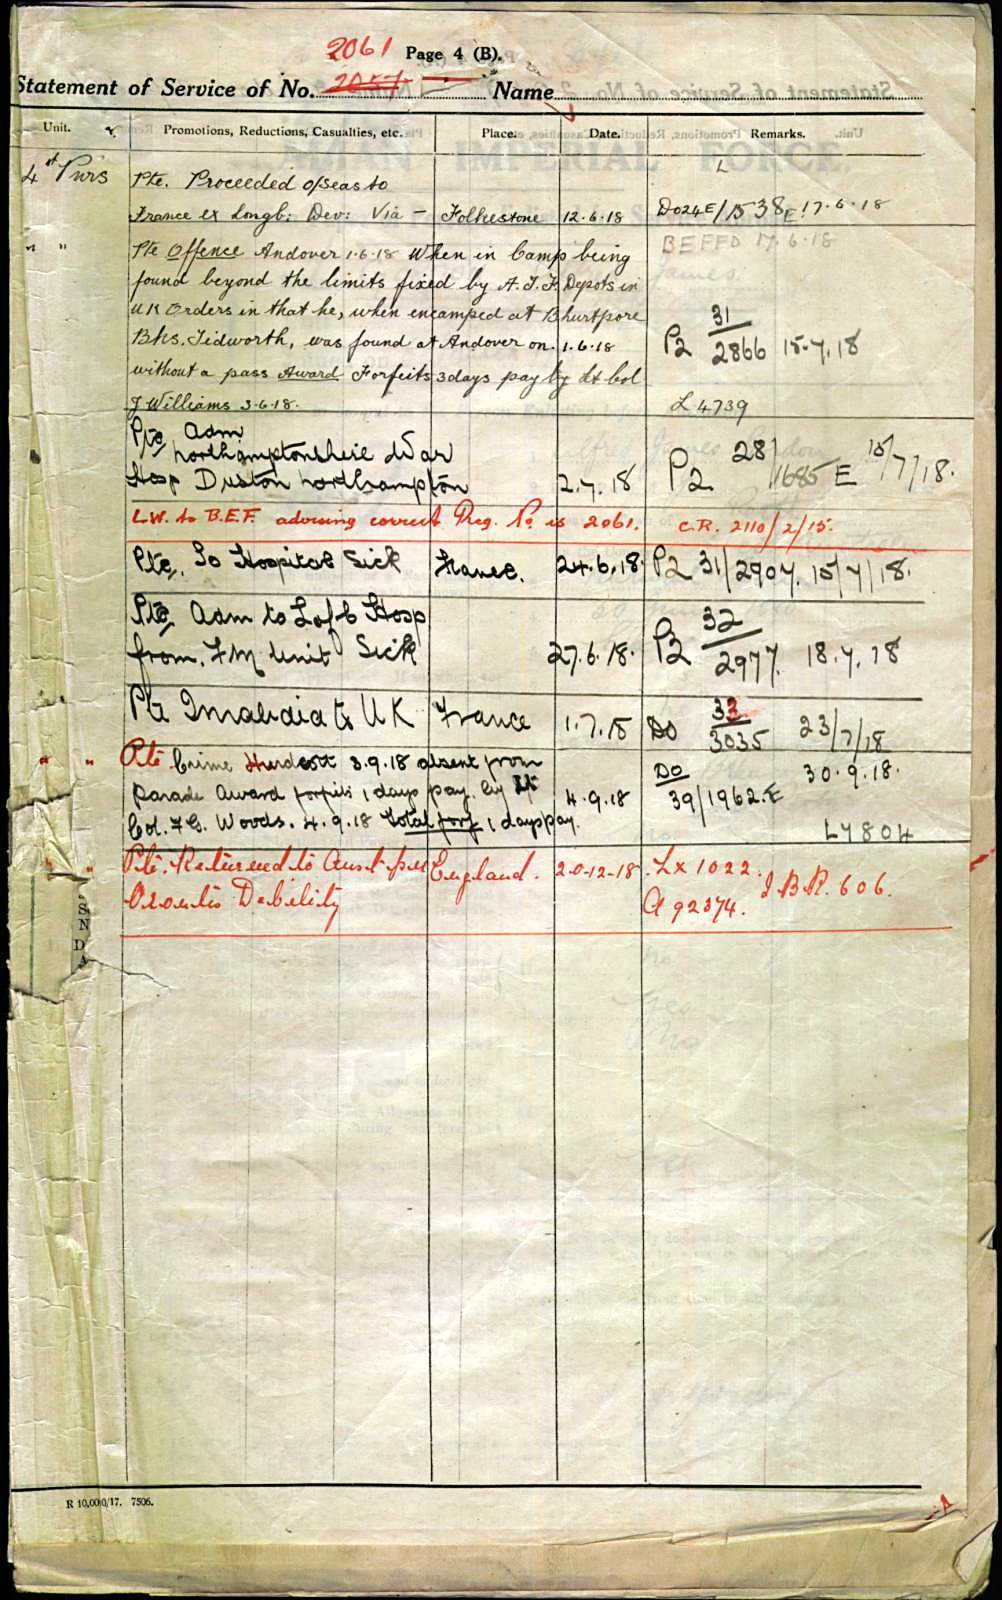 2061 Page 4 (B).
Statement of Service of No. 2057 Name
Unit. Promotions, Reductions, Casualties, etc. Place. Date. Remarks.
4 Pnrs Pte. Proceeded o/seas to
France ex Longb: Dev: Via - Folkestone 12.6.18 DO24E/1538E 17.6.18
" " Pte Offence Andover 1.6.18 When in Camp being BEFFD 17.6.18
found beyond the limits fixed by A.I.F. Depots in
UK Orders in that he, when encamped at Bhurtpore 31
Bks. Tidworth, was found at Andover on. 1.6.18 P2 2866 15.7.18
without a pass Award Forfeits 3 days pay by Lt Col
J Williams 3.6.18. L4739
Pte Adm
Northamptonshire War 28/
Hosp Duston Northampton 2.7.18 P2 1685 E 15/7/18.
L.W. to B.E.F. advising correct Reg. No. is 2061. C.R. 2110/2/15.
Pte. To Hospital Sick France. 24.6.18. P2 31/2907. 15/7/18.
Pte Adm to L of C Hosp 32
from. Fd Unit Sick 27.6.18. P2 2977. 18.7.18
Pte Invalided to UK France 1.7.18 DO 33
3035 23/7/18
" " Pte Crime Hurdcott 3.9.18 absent from DO 30.9.18.
parade Award forfeits 1 days pay by Lt 4.9.18 39/1962.E
Col. F G. Woods. 4.9.18 Total forf 1 days pay. L7804
" " Pte. Returned to Aust per England. 20-12-18 Lx 1022.
Orontes Debility A 92374. I.B.R. 606.
S
N
D
A
R 10,000/17. 7506.